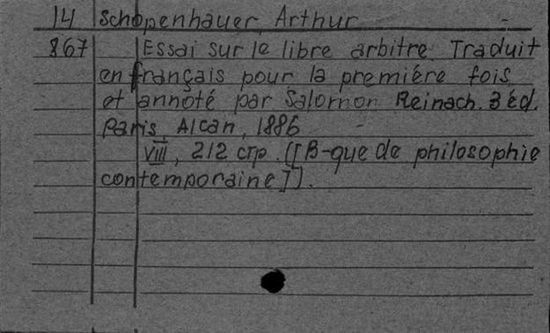 14 Schopenhauer, Arthur
867 Essai sur le libre arbitre. Traduit
en français pour la première fois
et annoté par Salomon Reinach. 3 éd.
Paris, Alcan, 1886
VIII, 212 стр. ([B-que de philosophie
contemporaine]).